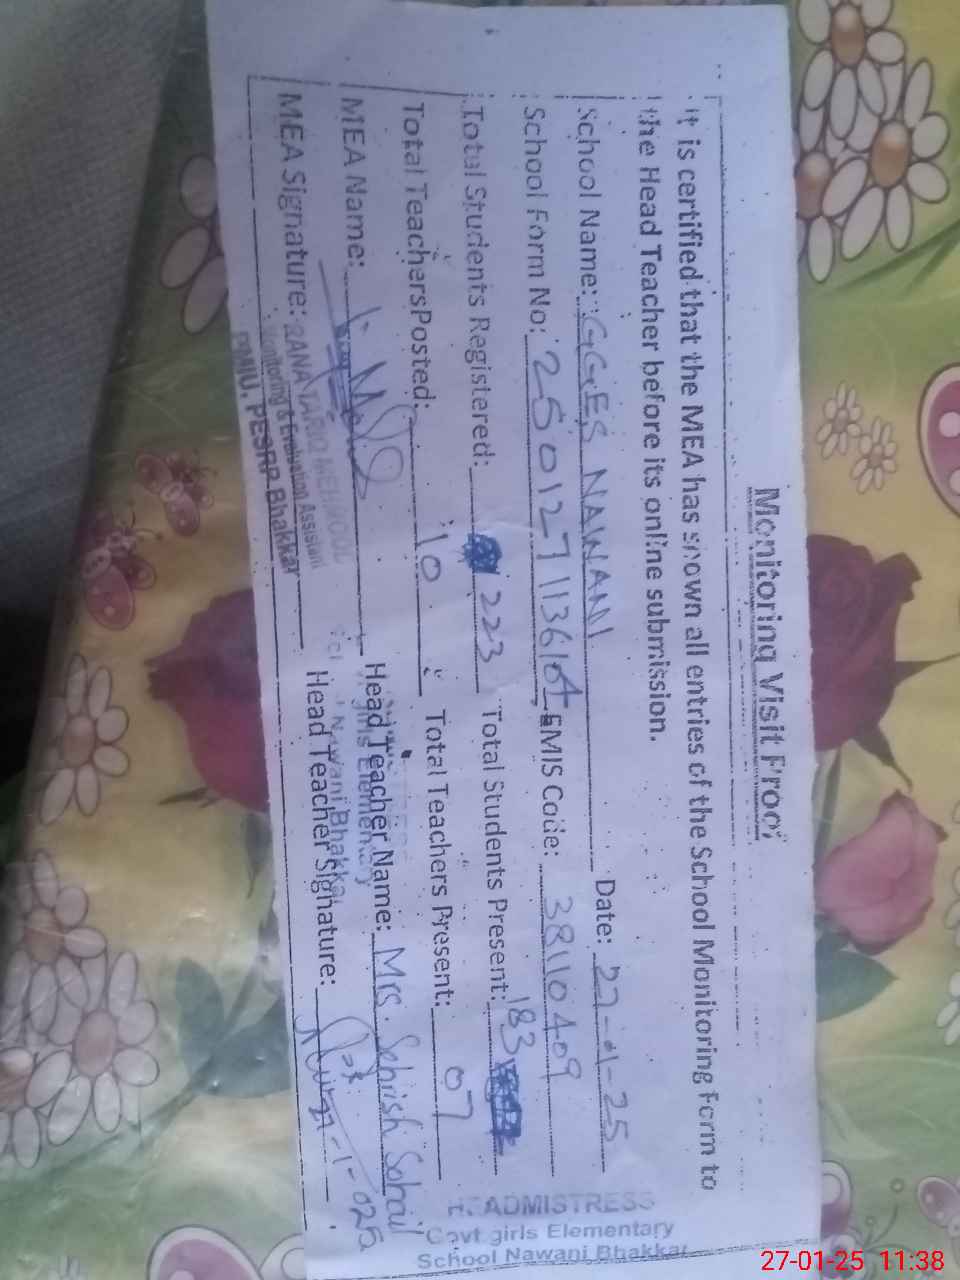 Monitoring Visit Proof
It is certified that the MEA has shown all entries of the School Monitoring Form to
the Head Teacher before its online submission.
School Name: GGES NAWANI Date: 27-1-25
School Form No: EMIS Code: 38110409
Total Students Registered: 223 Total Students Present: 183
Total Teachers Posted: 10 Total Teachers Present: 07
MEA Name: Head Teacher Name: Mrs. Sehrish Sohail
MEA Signature: Head Teacher Signature:
RANA TARIQ MEHMOOD
Monitoring & Evaluation Assistant
PMIU, PESRP Bhakkar
Nawani Bhakkar
HEADMISTRESS
Govt girls Elementary
School Nawani Bhakkar
27-01-25 11:38